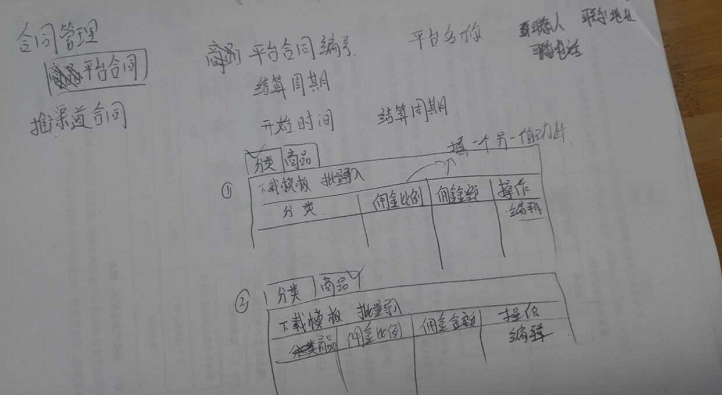 合同管理
平台合同
推渠道合同
平台合同编号 平台名称 联系人 联系地址
联系电话
结算周期
开始时间 结算周期
填一个另一值动计
① 分类 商品
下载模板 批量导入
分类 佣金比例 佣金金额 操作
编辑
② 分类 商品
下载模板 批量导入
商品 佣金比例 佣金金额 操作
编辑